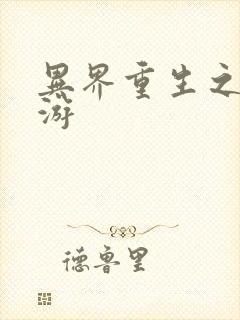 異界重生之
游
德鲁里